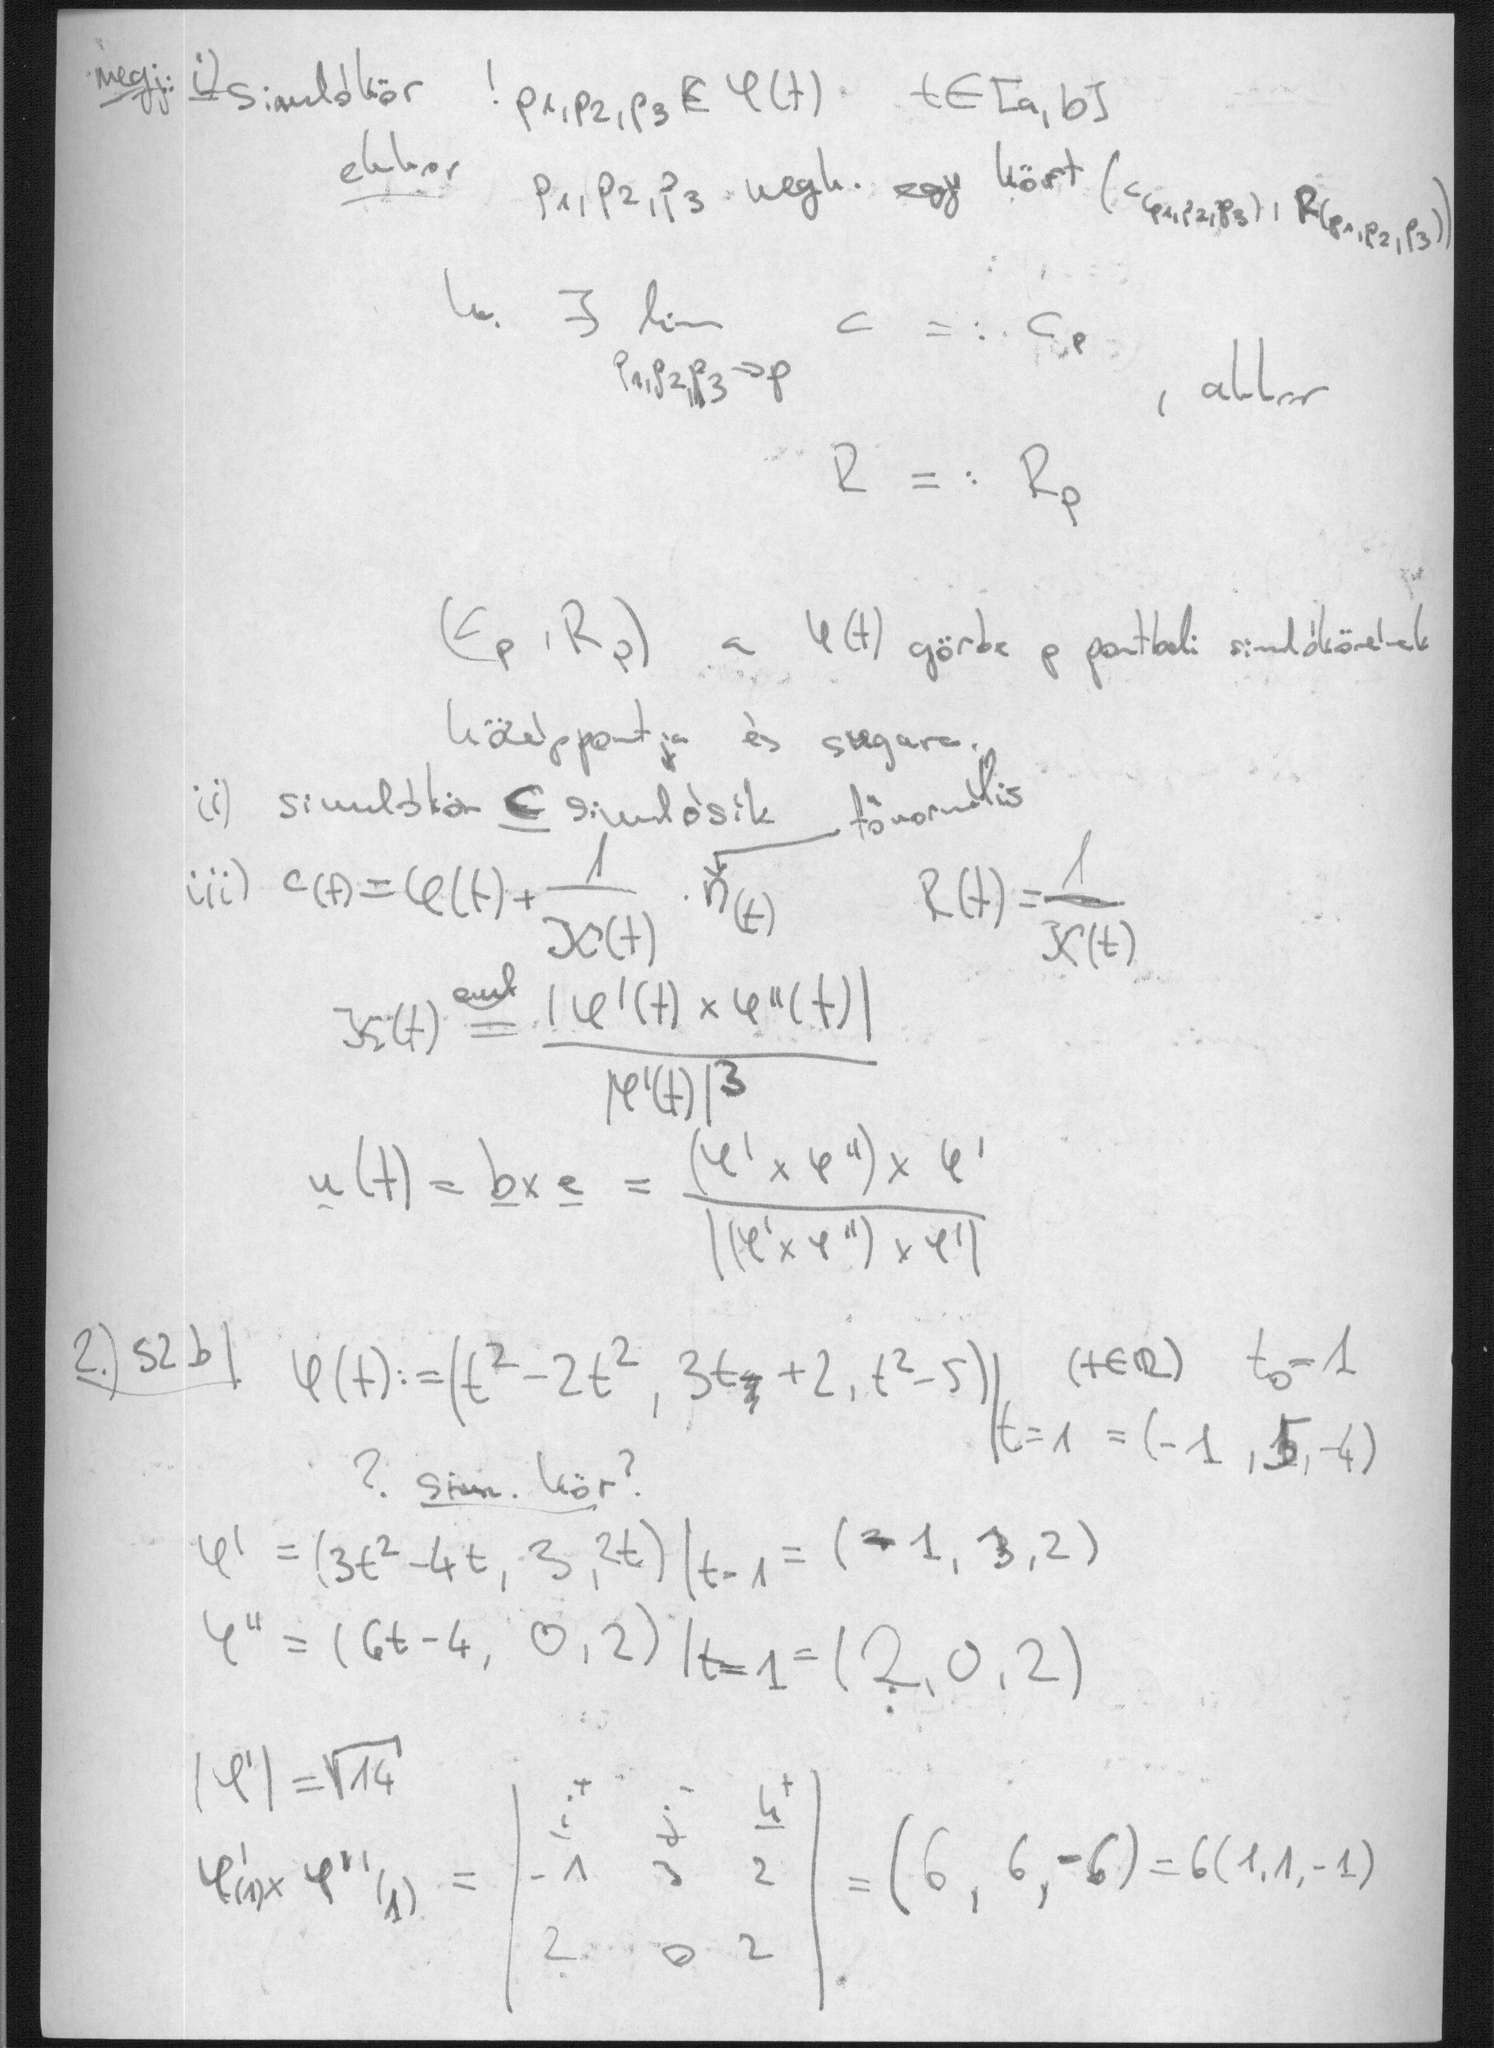 megj.: i) simulókör ! p1,p2,p3 ∈ φ(t) t∈[a,b]
ekkor p1,p2,p3 megh. egy kört (c(p1,p2,p3), R(p1,p2,p3))
ha ∃ lim c =: cp
p1,p2,p3→p , akkor
R =: Rp
(cp, Rp) a φ(t) görbe p pontbeli simulókörének
középpontja és sugara.
ii) simulókör ⊂ simulósík főnormális
iii) c(t) = φ(t) + 1/ϰ(t) · n(t) R(t) = 1/ϰ(t)
ϰ(t) = |φ'(t) × φ''(t)| / |φ'(t)|3
n(t) = b × e = (φ' × φ'') × φ' / |(φ' × φ'') × φ'|
2.) 52 b| φ(t) := (t2 - 2t2, 3t + 2, t2 - 5) (t∈R) t0 = 1
|t=1 = (-1, 5, -4)
? sim. kör?
φ' = (3t2 - 4t, 3, 2t)|t=1 = (-1, 3, 2)
φ'' = (6t - 4, 0, 2)|t=1 = (2, 0, 2)
|φ'| = √14
i+ j- k+
φ'(1) × φ''(1) = | -1 3 2 | = (6, 6, -6) = 6(1,1,-1)
2 0 2